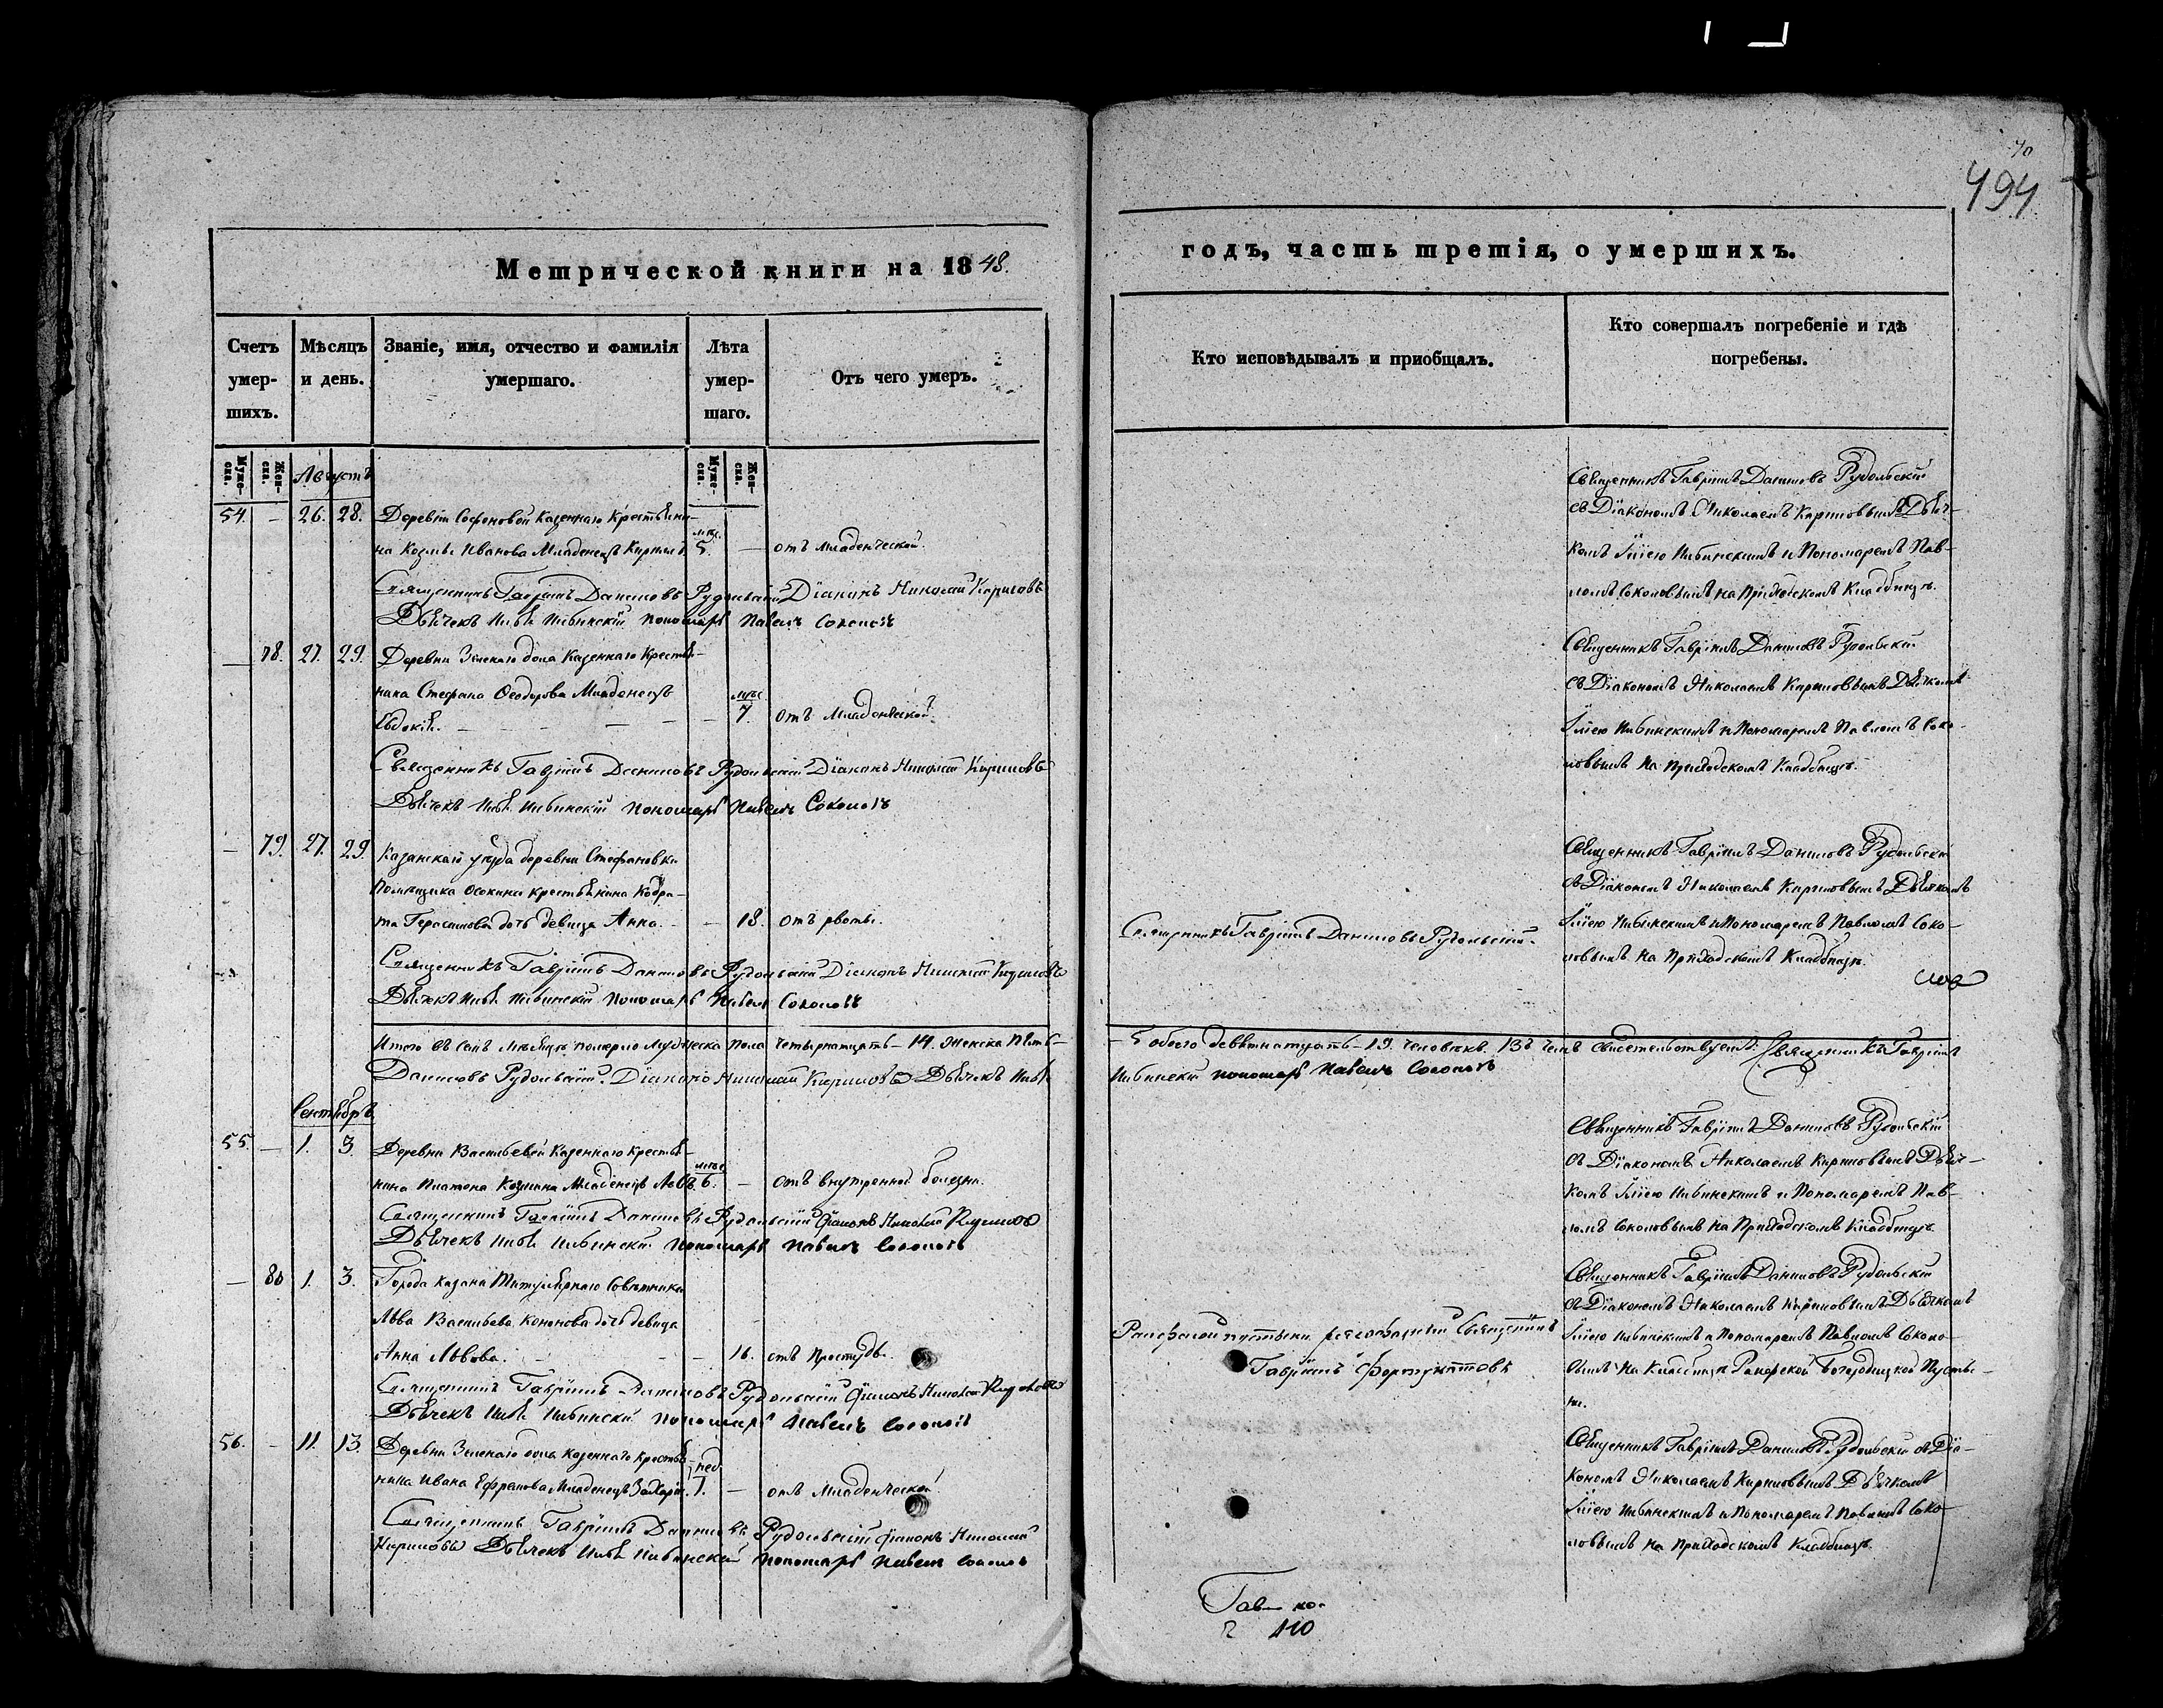 40
494
Метрической книги на 1848.
годъ, часть третія, о умершихъ.
Счетъ умер-шихъ.
Мѣсяцъ и день.
Званіе, имя, отчество и фамилія умершаго.
Лѣта умер-шаго.
Отъ чего умеръ.
Кто исповѣдывалъ и пріобщалъ.
Кто совершалъ погребеніе и гдѣ погребены.
Муже-ска.
Жен-ска.
Августъ
Муже-ска.
Жен-ска.
54. — 26. 28. Деревни Софоновой казеннаго крестьяни-
на Козмы Иванова младенецъ Кирилъ. мѣс. 5. — отъ младенческой.
Священникъ Гавріилъ Даниловъ Рудольскій Діаконъ Николай Кириловъ
Дьячекъ Илья Пибинскій пономарь Павелъ Соколовъ
Священникъ Гавріилъ Даниловъ Рудольскій
съ Діакономъ Николаемъ Кириловымъ Дьяч-
комъ Ильею Пибинскимъ и Пономаремъ Пав-
ломъ Соколовымъ на Приходскомъ Кладбищѣ.
— 78. 27. 29. Деревни Зеленаго дола казеннаго кресть-
нина Стефана Ѳеодорова младенецъ
Евдокія. — — — — мѣс 7. отъ младенческой.
Священникъ Гавріилъ Даниловъ Рудольскій Діаконъ Николай Кириловъ
Дьячекъ Илья Пибинскій пономарь Павелъ Соколовъ
Священникъ Гавріилъ Даниловъ Рудольскій
съ Діакономъ Николаемъ Кириловымъ Дьячкомъ
Ильею Пибинскимъ и Пономаремъ Павломъ Соко-
ловымъ на Приходскомъ Кладбищѣ.
— 79. 27. 29. Казанскаго уѣзда деревни Стефановки
Помѣщика Осокина крестьянина Кодра-
та Герасимова дочь девица Анна. — 18. отъ рвоты.
Священникъ Гавріилъ Даниловъ Рудольскій Діаконъ Николай Кириловъ
Дьячекъ Илья Пибинскій пономарь Павелъ Соколовъ
Священникъ Гавріилъ Даниловъ Рудольскій.
Священникъ Гавріилъ Даниловъ Рудольскій
съ Діакономъ Николаемъ Кириловымъ Дьячкомъ
Ильею Пибинскимъ и Пономаремъ Павломъ Соко-
ловымъ на Приходскомъ Кладбищѣ.
Итого въ семъ мѣсяцѣ померло мужеска пола четырнатцать — 14. женска пять — 5 обоего девятнатцать — 19. человѣкъ. въ чемъ свидетельствуемъ: Священникъ Гавріилъ
Даниловъ Рудольскій. Діаконъ Николай Кириловъ Дьячекъ Илья Пибинскій пономарь Павелъ Соколовъ
Сентябрь
55. — 1. 3. Деревни Васильевой казеннаго кресть-
нина Платона Козмина младенецъ Левъ. мѣс 6. — отъ внутренной болезни.
Священникъ Гавріилъ Даниловъ Рудольскій Діаконъ Николай Кириловъ
Дьячекъ Илья Пибинскій пономарь Павелъ Соколовъ
Священникъ Гавріилъ Даниловъ Рудольскій
съ Діакономъ Николаемъ Кириловымъ Дьяч-
комъ Ильею Пибинскимъ и Пономаремъ Пав-
ломъ Соколовымъ на Приходскомъ Кладбищѣ
— 80 1. 3. Города Казани Титулярнаго Советника
Льва Васильева Кононова дочь девица
Анна Львова. — — — 16. отъ простуды.
Священникъ Гавріилъ Даниловъ Рудольскій Діаконъ Николай Кириловъ
Дьячекъ Илья Пибинскій пономарь Павелъ Соколовъ
Раифской пустыни Священникъ
Гавріилъ Фортунатовъ
Священникъ Гавріилъ Даниловъ Рудольскій
съ Діакономъ Николаемъ Кириловымъ Дьячкомъ
Ильею Пибинскимъ и Пономаремъ Павломъ Соколо-
вымъ на Кладбищѣ Раифской Богородицкой Пусты-
ни.
56. — 11. 13. Деревни Зеленаго дола казеннаго кресть-
нина Ивана Ефремова младенецъ Захарій. нед 1. — отъ младенческой
Священникъ Гавріилъ Даниловъ Рудольскій Діаконъ Николай
Кириловъ Дьячекъ Илья Пибинскій пономарь Павелъ Соколовъ
Священникъ Гавріилъ Даниловъ Рудольскій съ Діа-
кономъ Николаемъ Кириловымъ Дьячкомъ
Ильею Пибинскимъ и Пономаремъ Павломъ Соко-
ловымъ на Приходскомъ Кладбищѣ.
110